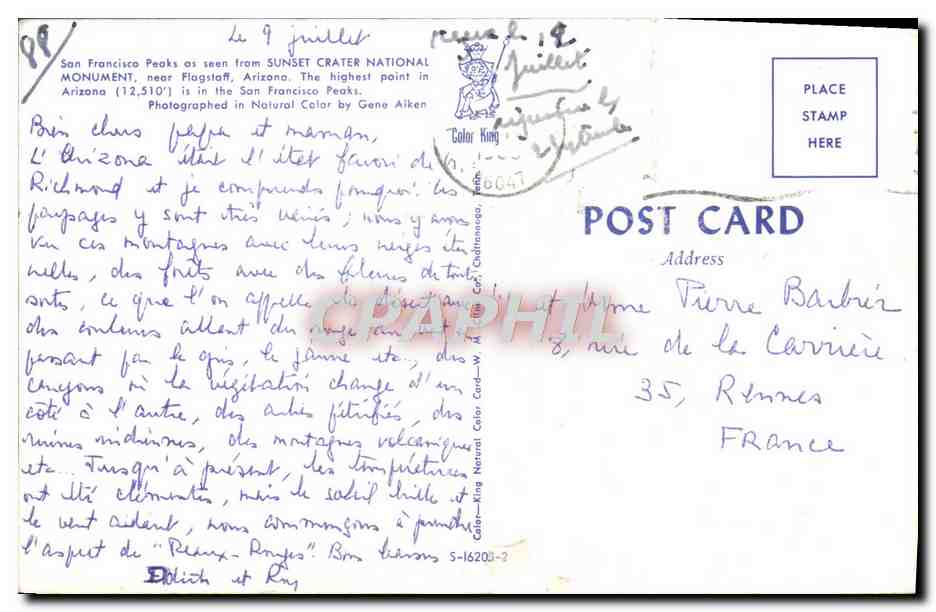 88
Le 9 juillet
San Francisco Peaks as seen from SUNSET CRATER NATIONAL
MONUMENT, near Flagstaff, Arizona. The highest point in
Arizona (12,510') is in the San Francisco Peaks.
Photographed in Natural Color by Gene Aiken
Color King
juillet
PLACE
STAMP
HERE
POST CARD
Address
Bien chers papa et maman,
L'Arizona était l'état favori de
Richmond et je comprends pourquoi. Les
paysages y sont très variés ; nous y avons
vu ces montagnes avec leurs neiges éter
nelles, des forêts avec des de toutes
sortes, ce que l'on appelle le désert avec
des couleurs allant du rouge au vert
passant par le gris, le jaune etc.., des
canyons où la végétation change d'un
côté à l'autre, des arbres pétrifiés, des
ruines indiennes, des montagnes volcaniques
etc... Jusqu'à présent, les températures
ont été clémentes, mais le soleil brille et
le vent aidant, nous commençons à prendre
l'aspect de "Peaux-Rouges". Bons baisers
Edith et Roy
Color-King Natural Color Card—W. M. Cline Co., Chattanooga, Tenn.
S-16203-2
et Mme Pierre Barbier
8, rue de la Carrière
35, Rennes
FRANCE
CPAPHIL